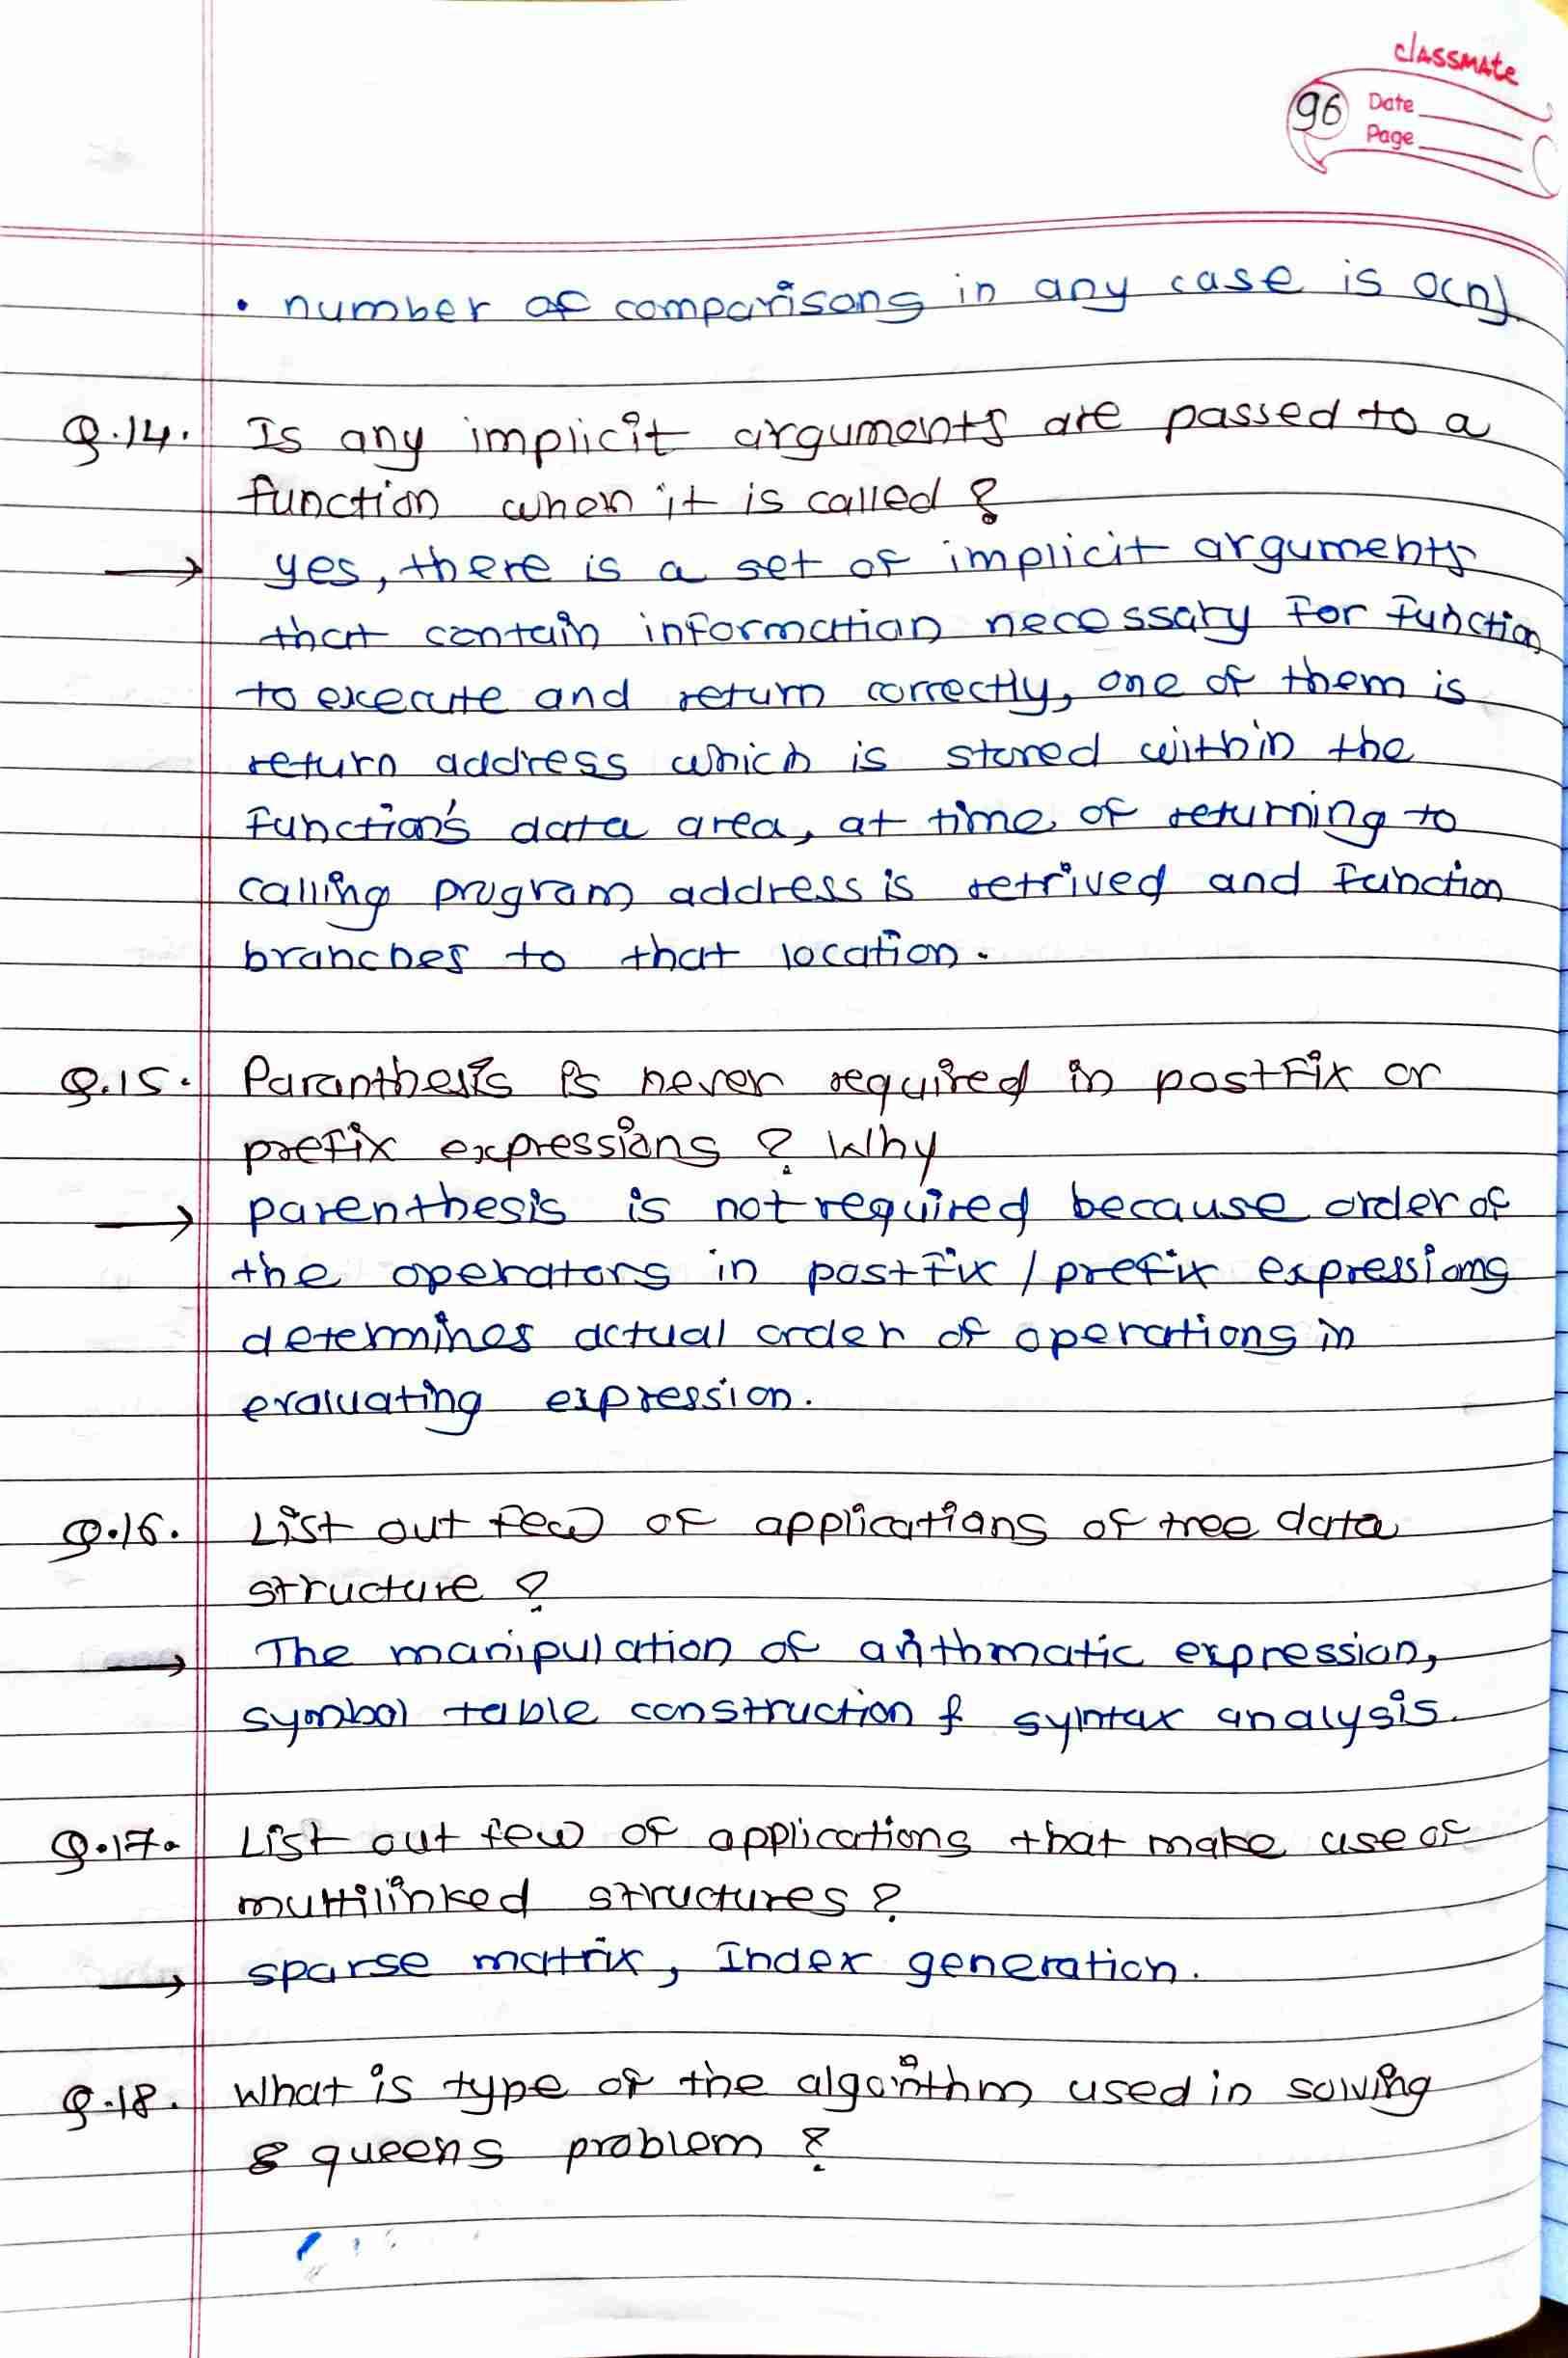 classmate
96
Date
Page
• number of comparisons in any case is O(n)
Q.14. Is any implicit arguments are passed to a
function when it is called?
→ yes, there is a set of implicit arguments
that contain information necessary for function
to execute and return correctly, one of them is
return address which is stored within the
function's data area, at time of returning to
calling program address is retrived and function
branches to that location.
Q.15. Paranthesis is never required in postfix or
prefix expressions? Why
→ parenthesis is not required because order of
the operators in postfix / prefix expressions
determines actual order of operations in
evaluating expression.
Q.16. List out few of applications of tree data
structure?
→ The manipulation of arithmatic expression,
symbol table construction & syntax analysis.
Q.17. List out few of applications that make use of
multilinked structures?
→ sparse matrix, Index generation.
Q.18. What is type of the algorithm used in solving
8 queens problem?